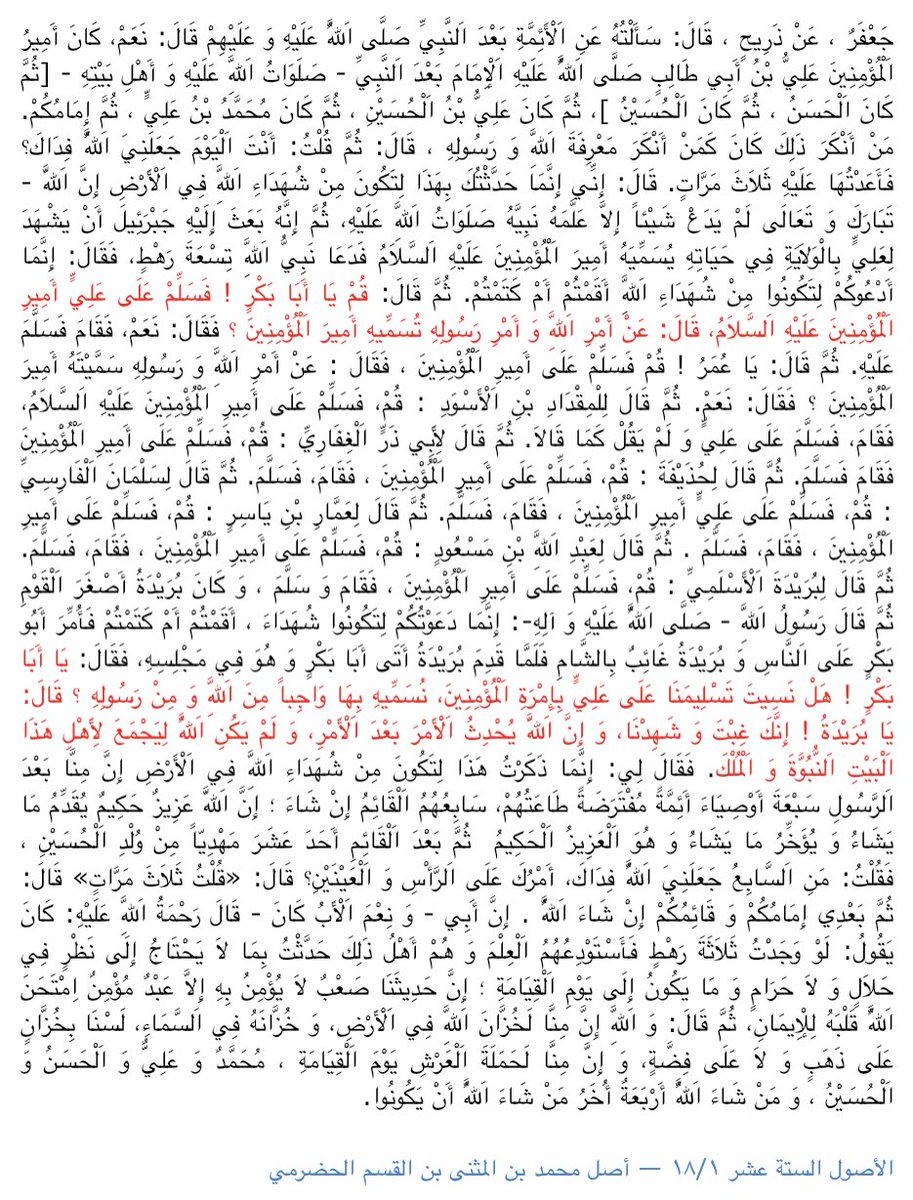 جَعْفَرٌ ، عَنْ ذَرِيحٍ ، قَالَ: سَأَلْتُهُ عَنِ اَلْأَئِمَّةِ بَعْدَ اَلنَّبِيِّ صَلَّى اَللهُ عَلَيْهِ وَ عَلَيْهِمْ قَالَ: نَعَمْ، كَانَ أَمِيرُ
اَلْمُؤْمِنِينَ عَلِيُّ بْنُ أَبِي طَالِبٍ صَلَّى اَللهُ عَلَيْهِ اَلْإِمَامَ بَعْدَ اَلنَّبِيِّ - صَلَوَاتُ اَللهِ عَلَيْهِ وَ أَهْلِ بَيْتِهِ - [ثُمَّ
كَانَ اَلْحَسَنُ ، ثُمَّ كَانَ اَلْحُسَيْنُ ]، ثُمَّ كَانَ عَلِيُّ بْنُ اَلْحُسَيْنِ ، ثُمَّ كَانَ مُحَمَّدُ بْنُ عَلِيٍّ ، ثُمَّ إِمَامُكُمْ.
مَنْ أَنْكَرَ ذَلِكَ كَانَ كَمَنْ أَنْكَرَ مَعْرِفَةَ اَللهِ وَ رَسُولِهِ ، قَالَ: ثُمَّ قُلْتُ: أَنْتَ اَلْيَوْمَ جَعَلَنِيَ اَللهُ فِدَاكَ؟
فَأَعَدْتُهَا عَلَيْهِ ثَلاَثَ مَرَّاتٍ. قَالَ: إِنِّي إِنَّمَا حَدَّثْتُكَ بِهَذَا لِتَكُونَ مِنْ شُهَدَاءِ اَللهِ فِي اَلْأَرْضِ إِنَّ اَللهَ -
تَبَارَكَ وَ تَعَالَى لَمْ يَدَعْ شَيْئاً إِلاَّ عَلَّمَهُ نَبِيَّهُ صَلَوَاتُ اَللهِ عَلَيْهِ، ثُمَّ إِنَّهُ بَعَثَ إِلَيْهِ جَبْرَئِيلَ أَنْ يَشْهَدَ
لِعَلِيٍّ بِالْوَلاَيَةِ فِي حَيَاتِهِ يُسَمِّيَهُ أَمِيرَ اَلْمُؤْمِنِينَ عَلَيْهِ السَّلاَمُ فَدَعَا نَبِيُّ اَللهِ تِسْعَةَ رَهْطٍ، فَقَالَ: إِنَّمَا
أَدْعُوكُمْ لِتَكُونُوا مِنْ شُهَدَاءِ اَللهِ أَقَمْتُمْ أَمْ كَتَمْتُمْ. ثُمَّ قَالَ: قُمْ يَا أَبَا بَكْرٍ ! فَسَلِّمْ عَلَى عَلِيٍّ أَمِيرِ
اَلْمُؤْمِنِينَ عَلَيْهِ اَلسَّلاَمُ، قَالَ: عَنْ أَمْرِ اَللهِ وَ أَمْرِ رَسُولِهِ تُسَمِّيهِ أَمِيرَ اَلْمُؤْمِنِينَ ؟ فَقَالَ: نَعَمْ، فَقَامَ فَسَلَّمَ
عَلَيْهِ. ثُمَّ قَالَ: يَا عُمَرُ ! قُمْ فَسَلِّمْ عَلَى أَمِيرِ اَلْمُؤْمِنِينَ ، فَقَالَ : عَنْ أَمْرِ اَللهِ وَ رَسُولِهِ سَمَّيْتَهُ أَمِيرَ
اَلْمُؤْمِنِينَ ؟ فَقَالَ: نَعَمْ. ثُمَّ قَالَ لِلْمِقْدَادِ بْنِ اَلْأَسْوَدِ : قُمْ، فَسَلِّمْ عَلَى أَمِيرِ اَلْمُؤْمِنِينَ عَلَيْهِ اَلسَّلاَمُ،
فَقَامَ، فَسَلَّمَ عَلَى عَلِيٍّ وَ لَمْ يَقُلْ كَمَا قَالاَ. ثُمَّ قَالَ لِأَبِي ذَرٍّ اَلْغِفَارِيِّ : قُمْ، فَسَلِّمْ عَلَى أَمِيرِ اَلْمُؤْمِنِينَ
فَقَامَ فَسَلَّمَ. ثُمَّ قَالَ لِحُذَيْفَةَ : قُمْ، فَسَلِّمْ عَلَى أَمِيرِ اَلْمُؤْمِنِينَ ، فَقَامَ، فَسَلَّمَ. ثُمَّ قَالَ لِسَلْمَانَ اَلْفَارِسِيِّ
: قُمْ، فَسَلِّمْ عَلَى عَلِيٍّ أَمِيرِ اَلْمُؤْمِنِينَ ، فَقَامَ، فَسَلَّمَ. ثُمَّ قَالَ لِعَمَّارِ بْنِ يَاسِرٍ : قُمْ، فَسَلِّمْ عَلَى أَمِيرِ
اَلْمُؤْمِنِينَ ، فَقَامَ، فَسَلَّمَ . ثُمَّ قَالَ لِعَبْدِ اَللهِ بْنِ مَسْعُودٍ : قُمْ، فَسَلِّمْ عَلَى أَمِيرِ اَلْمُؤْمِنِينَ ، فَقَامَ، فَسَلَّمَ.
ثُمَّ قَالَ لِبُرَيْدَةَ اَلْأَسْلَمِيِّ : قُمْ، فَسَلِّمْ عَلَى أَمِيرِ اَلْمُؤْمِنِينَ ، فَقَامَ وَ سَلَّمَ ، وَ كَانَ بُرَيْدَةُ أَصْغَرَ اَلْقَوْمِ
ثُمَّ قَالَ رَسُولُ اَللهِ - صَلَّى اَللهُ عَلَيْهِ وَ الِهِ-: إِنَّمَا دَعَوْتُكُمْ لِتَكُونُوا شُهَدَاءَ ، أَقَمْتُمْ أَمْ كَتَمْتُمْ فَأُمِّرَ أَبُو
بَكْرٍ عَلَى اَلنَّاسِ وَ بُرَيْدَةُ غَائِبٌ بِالشَّامِ فَلَمَّا قَدِمَ بُرَيْدَةُ أَتَى أَبَا بَكْرٍ وَ هُوَ فِي مَجْلِسِهِ، فَقَالَ: يَا أَبَا
بَكْرٍ ! هَلْ نَسِيتَ تَسْلِيمَنَا عَلَى عَلِيٍّ بِإِمْرَةِ اَلْمُؤْمِنِينَ، نُسَمِّيهِ بِهَا وَاجِباً مِنَ اَللهِ وَ مِنْ رَسُولِهِ ؟ قَالَ:
يَا بُرَيْدَةُ ! إِنَّكَ غِبْتَ وَ شَهِدْنَا، وَ إِنَّ اَللهَ يُحْدِثُ اَلْأَمْرَ بَعْدَ اَلْأَمْرِ، وَ لَمْ يَكُنِ اَللهُ لِيَجْمَعَ لِأَهْلِ هَذَا
اَلْبَيْتِ اَلنُّبُوَّةَ وَ اَلْمُلْكَ. فَقَالَ لِي: إِنَّمَا ذَكَرْتُ هَذَا لِتَكُونَ مِنْ شُهَدَاءِ اَللهِ فِي اَلْأَرْضِ إِنَّ مِنَّا بَعْدَ
اَلرَّسُولِ سَبْعَةَ أَوْصِيَاءَ أَئِمَّةً مُفْتَرَضَةً طَاعَتُهُمْ، سَابِعُهُمُ اَلْقَائِمُ إِنْ شَاءَ ؛ إِنَّ اَللهَ عَزِيزٌ حَكِيمٌ يُقَدِّمُ مَا
يَشَاءُ وَ يُؤَخِّرُ مَا يَشَاءُ وَ هُوَ اَلْعَزِيزُ اَلْحَكِيمُ ثُمَّ بَعْدَ اَلْقَائِمِ أَحَدَ عَشَرَ مَهْدِيّاً مِنْ وُلْدِ اَلْحُسَيْنِ ،
فَقُلْتُ: مَنِ اَلسَّابِعُ جَعَلَنِيَ اَللهُ فِدَاكَ، أَمْرُكَ عَلَى اَلرَّأْسِ وَ اَلْعَيْنَيْنِ؟ قَالَ: «قُلْتُ ثَلاَثَ مَرَّاتٍ» قَالَ:
ثُمَّ بَعْدِي إِمَامُكُمْ وَ قَائِمُكُمْ إِنْ شَاءَ اَللهُ . إِنَّ أَبِي - وَ نِعْمَ اَلْأَبُ كَانَ - قَالَ رَحْمَةُ اَللهِ عَلَيْهِ: كَانَ
يَقُولُ: لَوْ وَجَدْتُ ثَلاَثَةَ رَهْطٍ فَأَسْتَوْدِعُهُمُ اَلْعِلْمَ وَ هُمْ أَهْلُ ذَلِكَ حَدَّثْتُ بِمَا لاَ يَحْتَاجُ إِلَى نَظْرٍ فِي
حَلاَلٍ وَ لاَ حَرَامٍ وَ مَا يَكُونُ إِلَى يَوْمِ اَلْقِيَامَةِ ؛ إِنَّ حَدِيثَنَا صَعْبٌ لاَ يُؤْمِنُ بِهِ إِلاَّ عَبْدٌ مُؤْمِنٌ اِمْتَحَنَ
اَللهُ قَلْبَهُ لِلْإِيمَانِ، ثُمَّ قَالَ: وَ اَللهِ إِنَّ مِنَّا لَخُزَّانَ اَللهِ فِي اَلْأَرْضِ، وَ خُزَّانَهُ فِي اَلسَّمَاءِ، لَسْنَا بِخُزَّانٍ
عَلَى ذَهَبٍ وَ لاَ عَلَى فِضَّةٍ، وَ إِنَّ مِنَّا لَحَمَلَةَ اَلْعَرْشِ يَوْمَ اَلْقِيَامَةِ ، مُحَمَّدٌ وَ عَلِيٌّ وَ اَلْحَسَنُ وَ
اَلْحُسَيْنُ ، وَ مَنْ شَاءَ اَللهُ أَرْبَعَةٌ أُخَرُ مَنْ شَاءَ اَللهُ أَنْ يَكُونُوا.
الأصول الستة عشر ١٨/١ — أصل محمد بن المثنى بن القسم الحضرمي